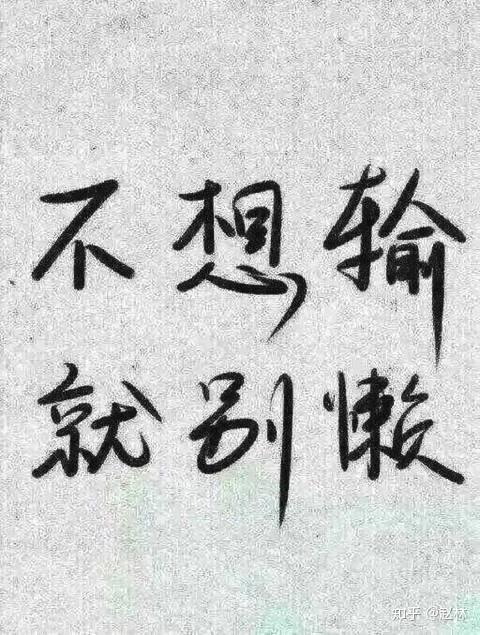 不想输
就别懒
知乎 @赵林